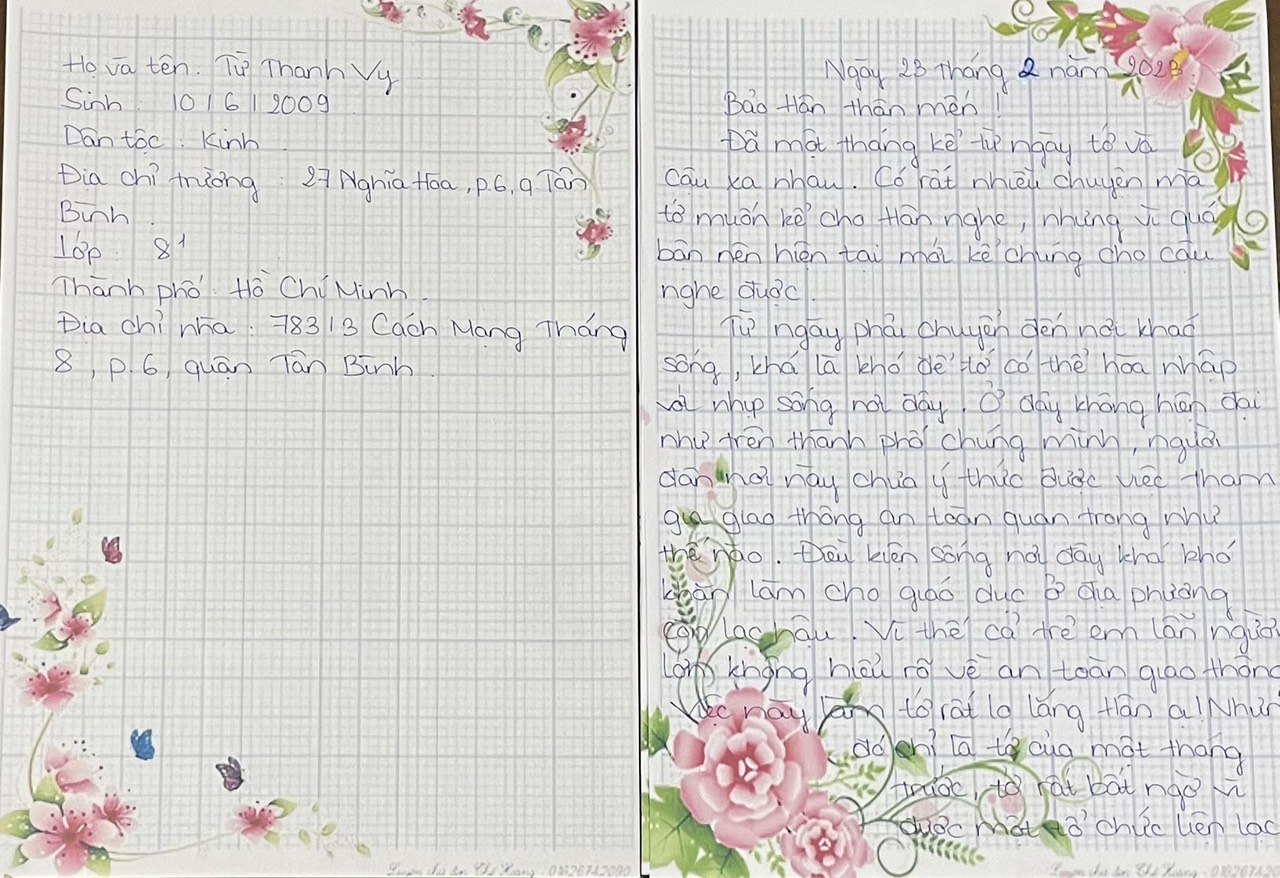 Họ và tên: Từ Thanh Vy
Sinh: 10/6/2009
Dân tộc: Kinh
Địa chỉ trường: 27 Nghĩa Hòa, p.6, q Tân
Bình.
Lớp: 8¹
Thành phố: Hồ Chí Minh.
Địa chỉ nhà: 783/3 Cách Mạng Tháng
8, p.6, quận Tân Bình.
Ngày 23 tháng 2 năm 2023.
Bảo Hân thân mến!
Đã một tháng kể từ ngày tớ và
cậu xa nhau. Có rất nhiều chuyện mà
tớ muốn kể cho Hân nghe, nhưng vì quá
bận nên hiện tại mới kể chúng cho cậu
nghe được.
Từ ngày phải chuyển đến nơi khác
sống, khá là khó để tớ có thể hòa nhập
với nhịp sống nơi đây. Ở đây không hiện đại
như trên thành phố chúng mình, người
dân nơi này chưa ý thức được việc tham
gia giao thông an toàn quan trọng như
thế nào. Điều kiện sống nơi đây khá khó
khăn làm cho giáo dục ở địa phương
còn lạc hậu. Vì thế cả trẻ em lẫn người
lớn không hiểu rõ về an toàn giao thông
Việc này làm tớ rất lo lắng Hân ạ! Nhưn
đó chỉ là tớ của một tháng
trước, tớ rất bất ngờ vì
được một tổ chức liên lạc
0162674209